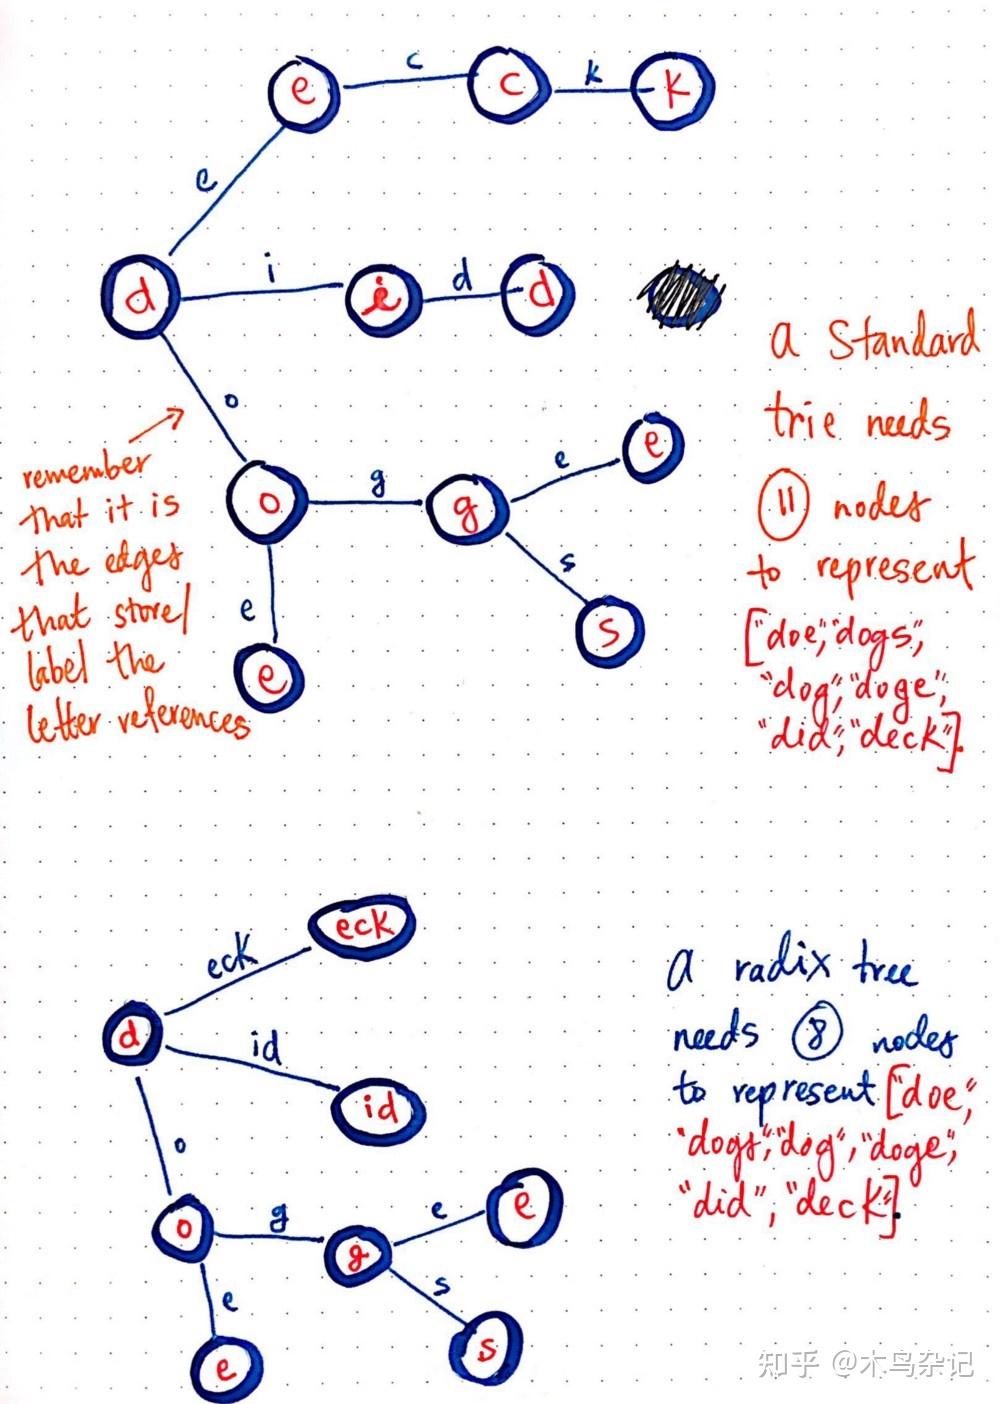 e c c k k
e
d i i d d
a Standard
trie needs
11 nodes
to represent
["doe","dogs",
"dog","doge",
"did","deck"].
o
remember
that it is
the edges
that store/
label the
letter references
o g g e e
s
s
e
e
eck
eck
d
id
id
o
o g g e e
s
s
e
e
a radix tree
needs 8 nodes
to represent ["doe",
"dogs","dog","doge",
"did","deck"].
知乎 @木鸟杂记